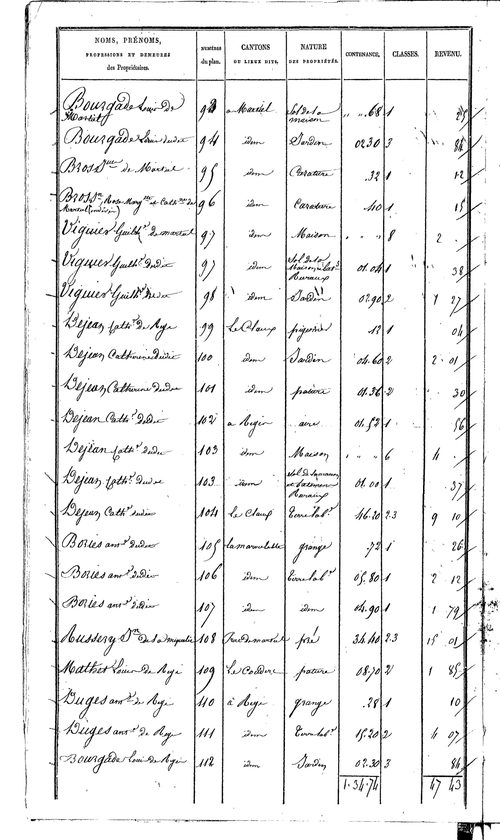 NOMS, PRÉNOMS, PROFESSIONS ET DEMEURES des Propriétaires. NUMÉROS du plan. CANTONS OU LIEUX DITS. NATURE DES PROPRIÉTÉS. CONTENANCE. CLASSES. REVENU.
Bourgade Louis de Martiel 93 a Martiel Sol de la maison " " 68 1
Bourgade Louis dudit 94 idem Jardin 02 30 3 84
Bross de Martiel 95 idem Carature 32 1 12
Bross 96 idem Carature 40 1 15
Viguier Guilh.e de martiel 97 idem Maison " " " 8 2 "
Viguier Guilh.e dudit 97 idem Sol de la Maison et bat.s Ruraux 01 04 1 38
Viguier Guilh.e dudit 98 idem Jardin 02 90 2 1 27
Dejean Cath.e de Rege 99 Le Claux pigeonier 12 1 04
Dejean Catherine dudit 100 idem Jardin 04 60 2 2 01
Dejean Catherine dudit 101 idem pature 01 36 2 30
Dejean Cath.e dudit 102 a Regin aire 01 52 1 56
Dejean Cath.e dudit 103 idem Maison " " " 6 4 "
Dejean Cath.e dudit 103 idem Sol de la maison et batimens Ruraux 01 00 1 37
Dejean Cath.e dudit 104 Le Claux Terre lab.e 46 20 2.3 9 10
Bories am.e dudit 105 grange 72 1 26
Bories am.e dudit 106 idem Terre lab.e 05 80 1 2 12
Bories am.e dudit 107 idem idem 04 90 1 1 79
Aussery 108 pré 34 40 2.3 15 01
Mathet Louis de Rege 109 Le Coudere pature 08 70 2 1 85
Duges am.e de Rege 110 à Rege grange 28 1 10
Duges am.e de Rege 111 idem Terre lab.e 15 20 2 4 07
Bourgade Louis de Regin 112 idem Jardin 02 30 3 84
1.34.74 47 43